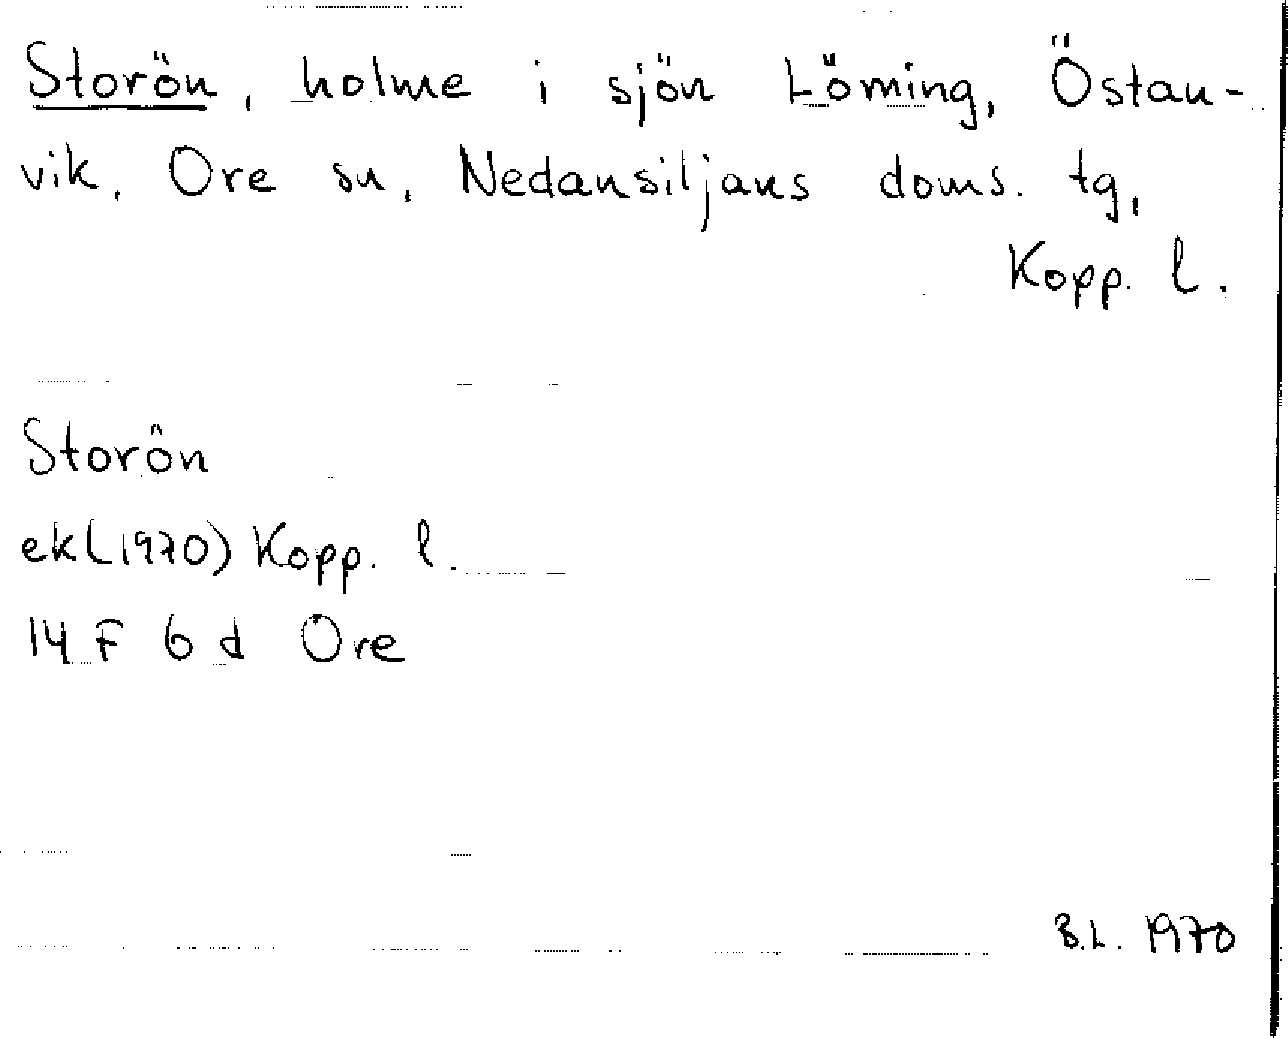 Storön, holme i sjön Löming, Östan-
vik, Ore sn, Nedansiljans doms. tg,
Kopp. l.
Storön
ek(1970) Kopp. l.
14 F 6 d Ore
B.L. 1970